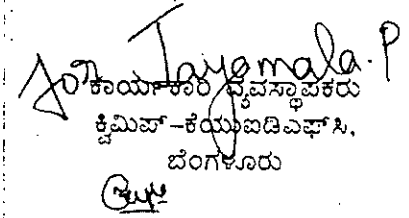 for Jayamala.P
ಕಾರ್ಯಕಾರಿ ವ್ಯವಸ್ಥಾಪಕರು
ಕ್ವಿಮಿಪ್-ಕೆಯುಐಡಿಎಫ್‌ಸಿ,
ಬೆಂಗಳೂರು